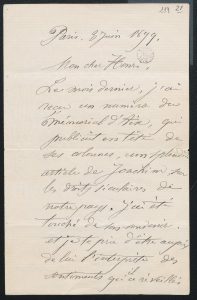 Paris. 8 Juin 1899.
Mon cher Henri,
Le mois dernier, j'ai
reçu un numéro du
Mémorial d'Aix, qui
publiait en tête de
ses colonnes, un splendide
article de Joachim sur
les droits séculaires de
notre pays. J'ai été
touché de
et je te prie d'être auprès
de lui l'interprète des
sentiments qu'a réveillé